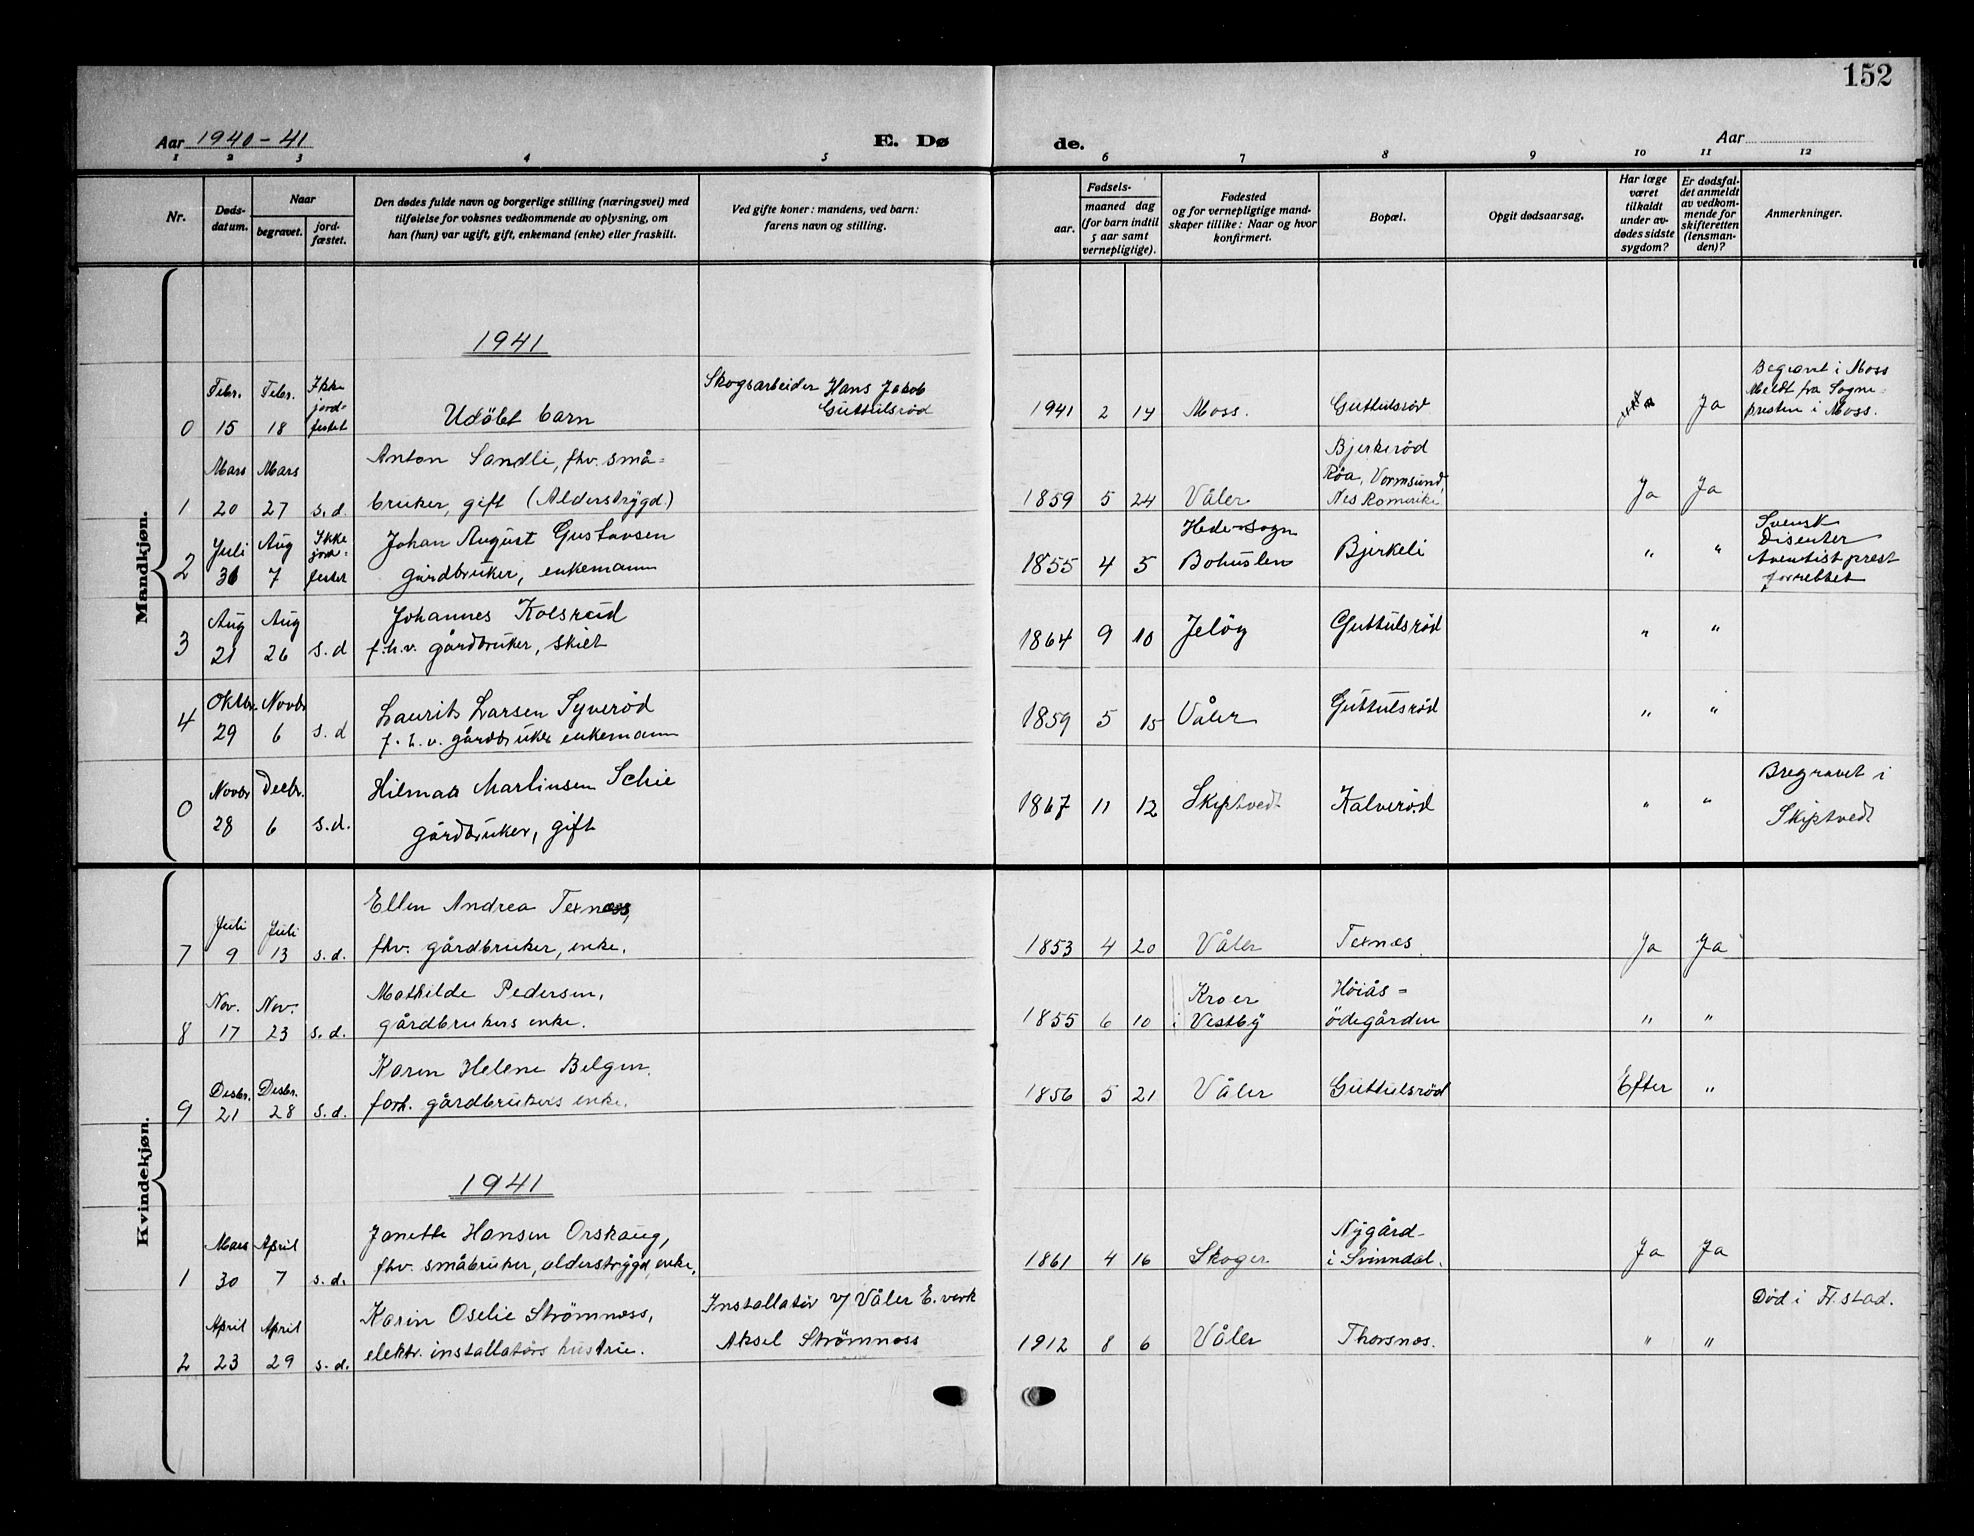 152
Aar 1940-41
E. Dø
de.
Aar
1 2 3 4 5 6 7 8 9 10 11 12
Nr.
Døds-
datum.
Naar
begravet.
jord-
fæstet.
Den dødes fulde navn og borgerlige stilling (næringsvei) med
tilføielse for voksnes vedkommende av oplysning, om
han (hun) var ugift, gift, enkemand (enke) eller fraskilt.
Ved gifte koner: mandens, ved barn:
farens navn og stilling.
Fødsels-
aar.
maaned dag
(for barn indtil
5 aar samt
vernepligtige).
Fødested
og for vernepligtige mand-
skaper tillike: Naar og hvor
konfirmert.
Bopæl.
Opgit dødsaarsag.
Har læge
været
tilkaldt
under av-
dødes sidste
sygdom?
Er dødsfal-
det anmeldt
av vedkom-
mende for
skifteretten
(lensman-
den)?
Anmerkninger.
Mandkjøn.
1941
0
Febr.
15
Febr.
18
Ikke
jord-
festet
Udøbt barn
Skogsarbeider Hans Jakob
Guttulsrød
1941 2 14
Moss.
Guttulsrød
Ja
Begravet i Moss
Meldt fra Sogne-
presten i Moss.
1
Mars
20
Mars
27
s.d.
Anton Sandli, fhv. små-
bruker, gift (Alderstrygd)
1859 5 24
Våler
Bjerkerød
Røa, Vormsund,
Nes Romerike
Ja
Ja
2
Juli
31
Aug
7
Ikke
jord-
festet
Johan August Gustavsen
gårdbruker, enkemann
1855 4 5
Hede sogn
Bohuslen
Bjerkeli
"
"
Svensk
Disenter
Aventist prest
forrettet
3
Aug
21
Aug
26
s.d
Johannes Kolsrud
f.h.v. gårdbruker, skilt
1864 9 10
Jeløy
Guttulsrød
"
"
4
Oktbr.
29
Novbr
6
s.d
Laurits Larsen Syverød
f.h.v. gårdbruker enkemann
1859 5 15
Våler
Guttulsrød
"
"
0
Novbr
28
Decbr.
6
s.d.
Hilmar Martinsen Schie
gårdbruker, gift
1867 11 12
Skiptvedt
Kalverød
"
"
Bregravet i
Skiptvedt
Kvindekjøn.
7
Juli
9
Juli
13
s.d.
Ellen Andrea Texnæs,
fhv. gårdbruker, enke.
1853 4 20
Våler
Texnæs.
Ja
Ja
8
Nov.
17
Nov.
23
s.d.
Mathilde Pedersen,
gårdbrukers enke.
1855 6 10
Kroer
i Vestby
Høiås-
ødegården
"
"
9
Desbr.
21
Desbr.
28
s.d.
Karen Helene Belgen.
forh. gårdbrukers enke.
1856 5 21
Våler
Guttulsrød
Efter
"
1941
1
Mars
30
April
7
s.d.
Janette Hansen Orskaug,
fhv. småbruker, alderstrygd, enke,
1861 4 16
Skoger
Nygård-
i Svinndal.
Ja
Ja
2
April
23
April
29
s.d.
Karin Oselie Strømnæss,
elektr. installatørs hustrie.
Installatør v/ Våler E. verk
Aksel Strømnæss
1912 8 6
Våler
Thorsnæs.
"
"
Død i Fr.stad.